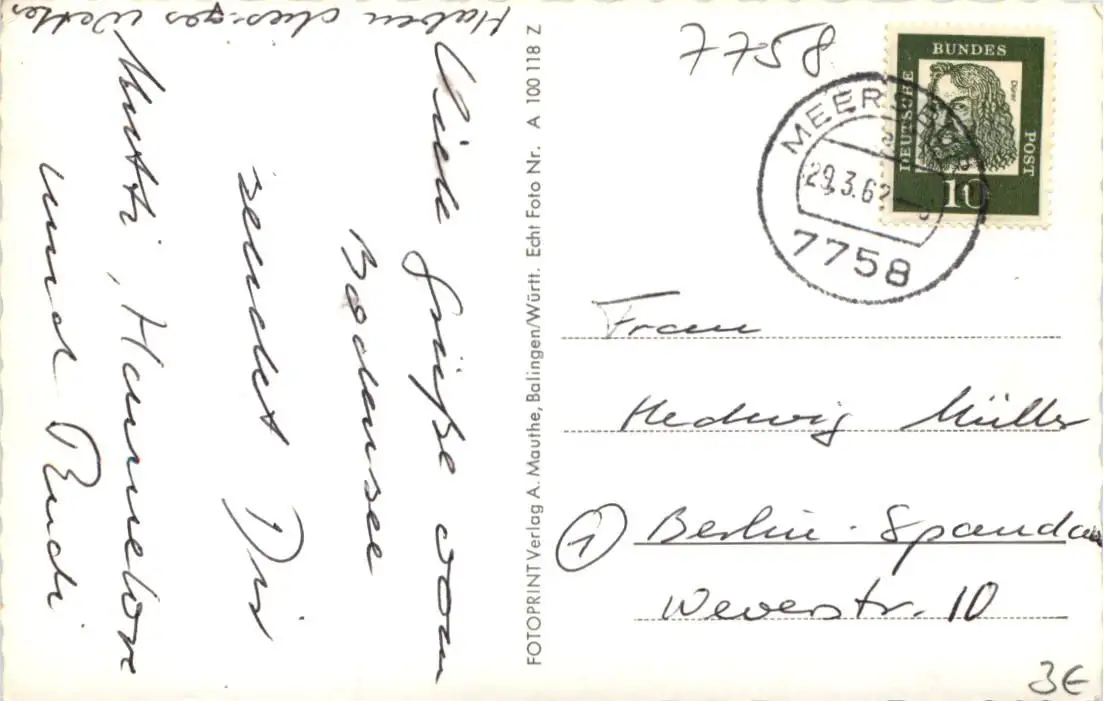 Viele Grüße vom
Bodensee
sendet Dir
Mutti, Hannelore
und Rudi
Haben
FOTOPRINT Verlag A. Mauthe, Balingen/Württ. Echt Foto Nr. A 100 118 Z
7758
DEUTSCHE BUNDES POST
Dürer
10
29.3.62
7758
Frau
Hedwig Müller
1 Berlin-Spandau
Weverstr. 10
3€